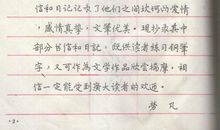 信和日记记录了他们之间坎坷的爱情
，感情真挚，文笔优美。现抄录其中
部分书信和日记，既供读者练习钢笔
字，又可作为文学作品欣赏揣摩，相
信一定能受到广大读者的欢迎。
梦 凡
·2·